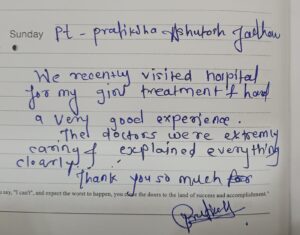 Sunday
Pt - pratiksha Ashutosh Jadhav
We recently visited hospital
for my girl treatment & had
a very good experience.
The doctors were extremly
caring & explained everything
clearly!
Thank you so much for
say, "I can't", and expect the worst to happen, you close the doors to the land of success and accomplishment."